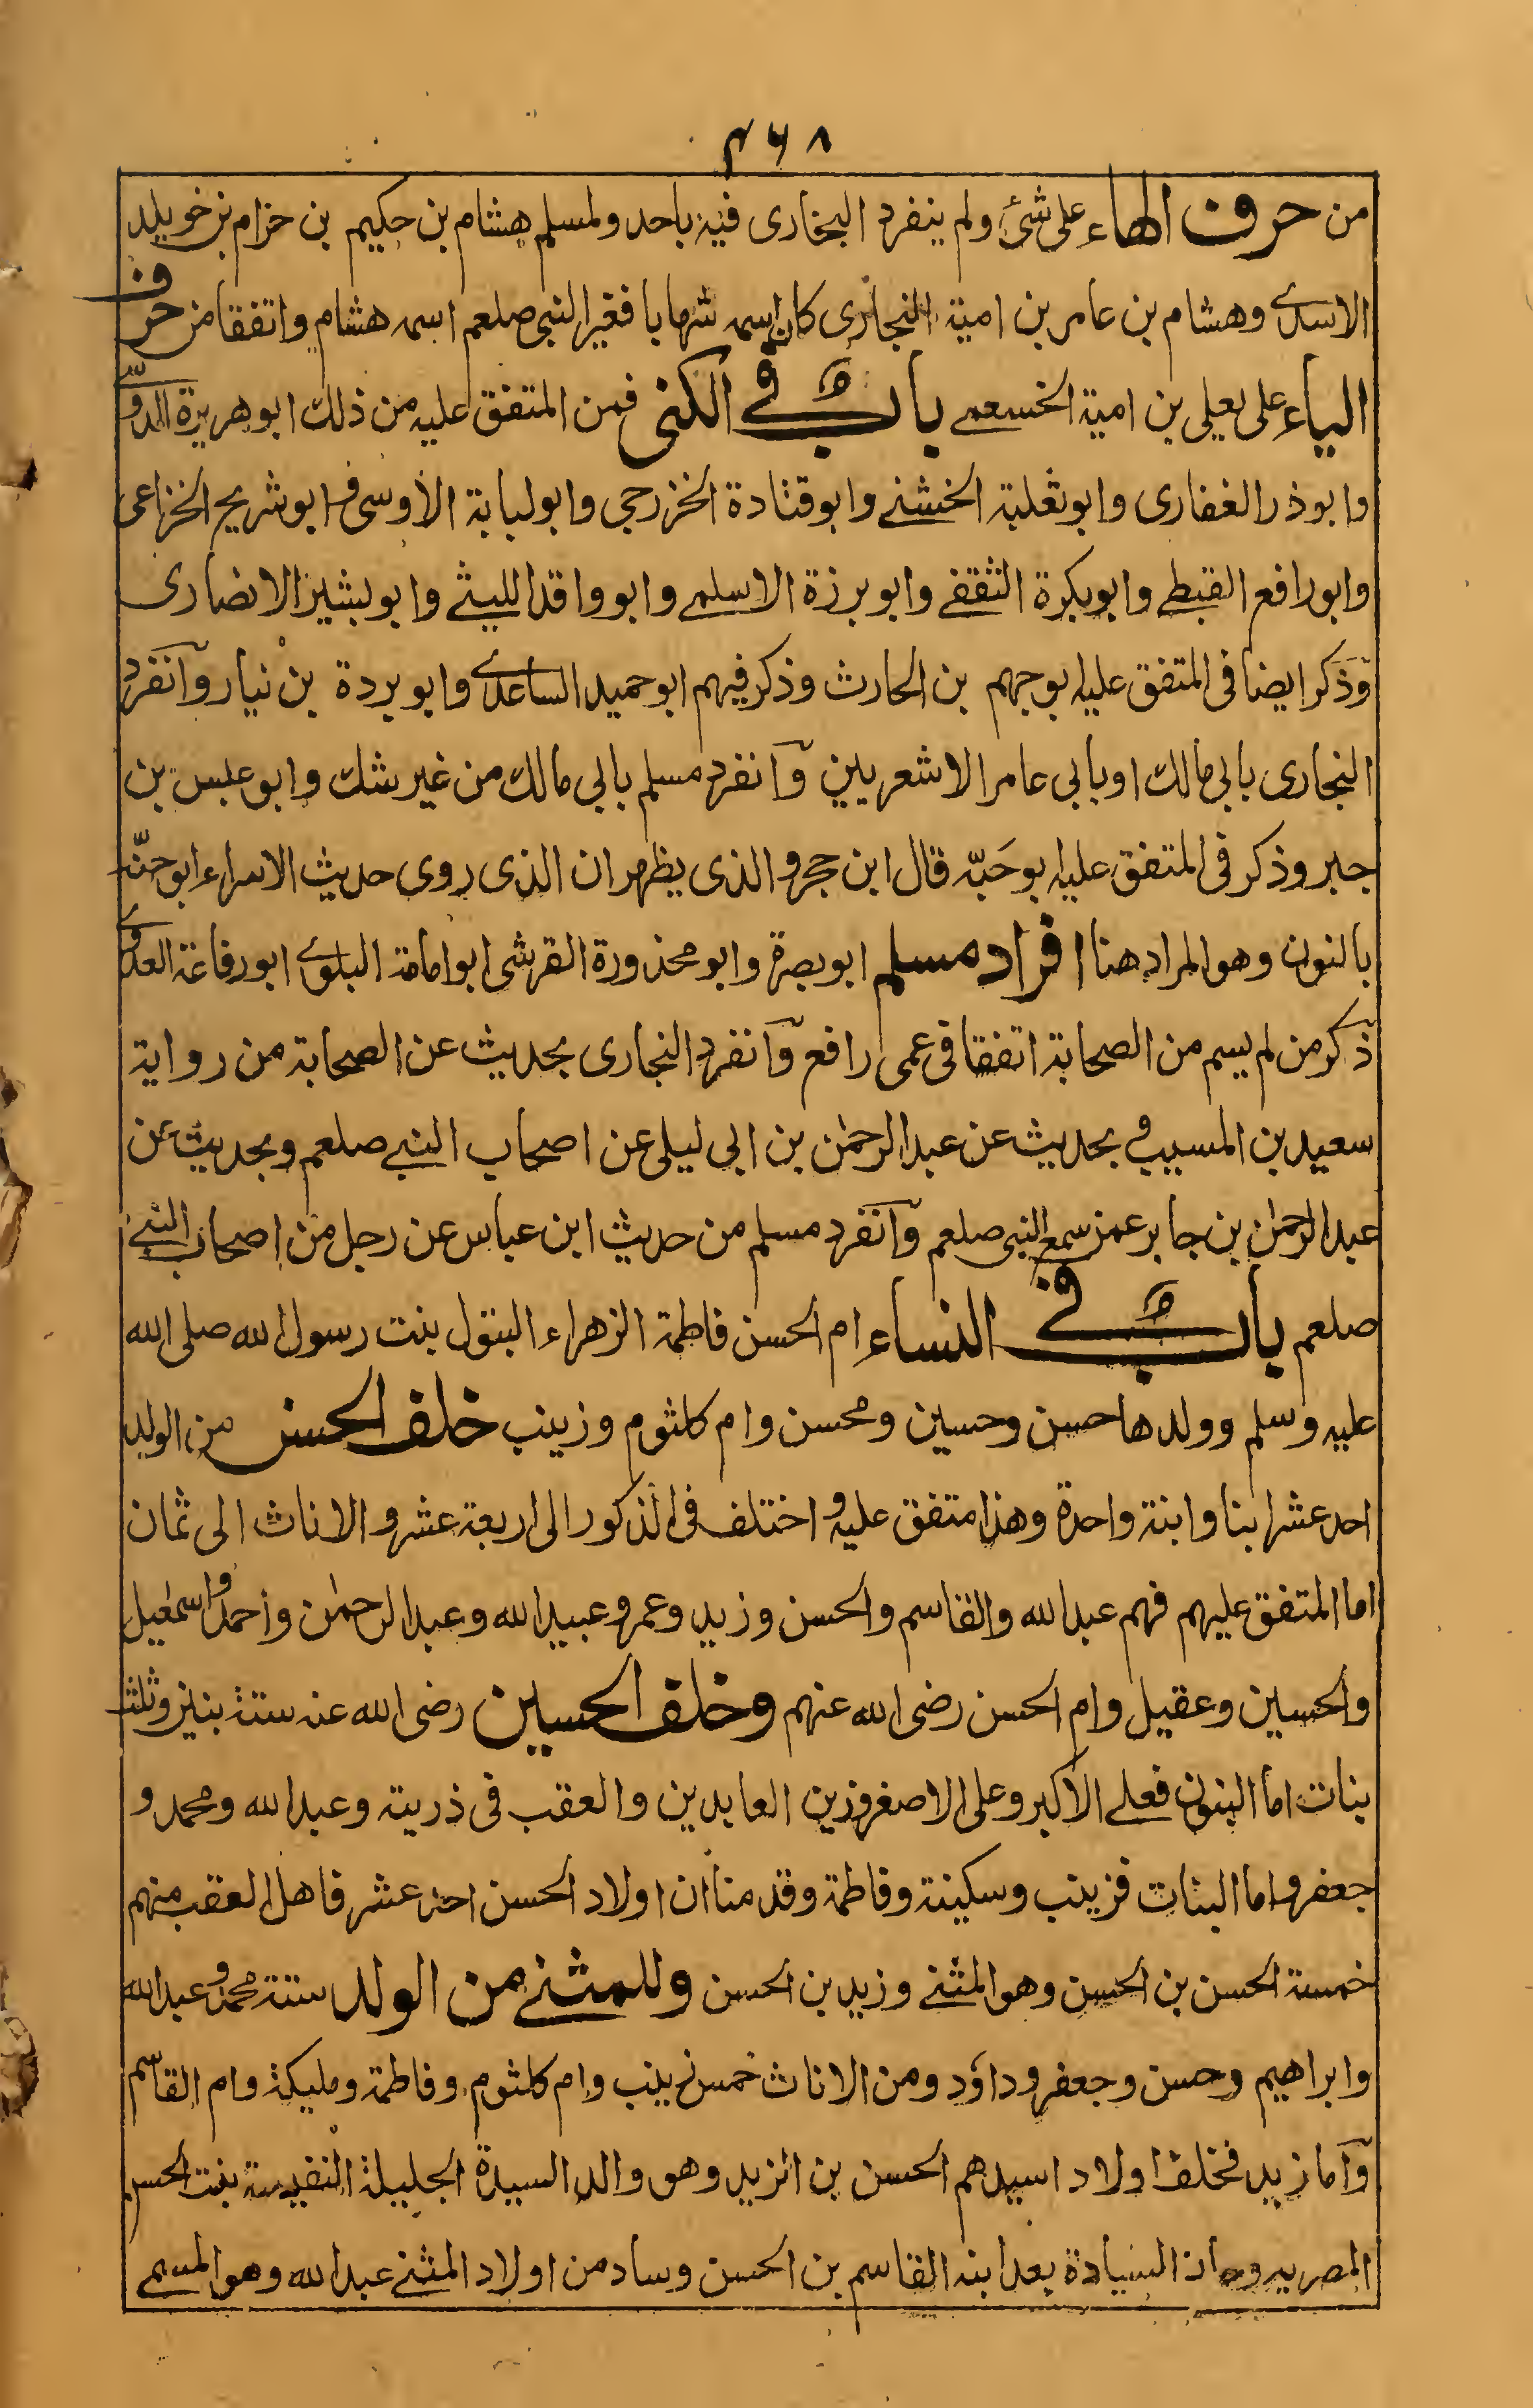 ٤٦٨
من حرف الهاء على شئ ولم ينفرد البخارى فيه باحد ولمسلم هشام بن حكيم بن حزام بن خويلد
الاسدے وهشام بن عامر بن امية النجارى كان اسمه شهابا فغير النبى صلعم اسمه هشام واتفقا من حرف
الياء على يعلى بن امية الخسعمے باب فى الكنى فمن المتفق عليه من ذلك ابو هريرة الدوّ
وابوذر الغفارى وابو ثعلبة الخشنے وابو قتادة الخزرجى وابو لبابة الأوسى و ابو شريح الخزاعى
وابو رافع القبطے وابو بكرة الثقفے وابو برزة الاسلمے وابو واقد الليثے وابو بشير الانصارى
وذكر ايضا فى المتفق عليه ابو جهم بن الحارث وذكر فيهم ابو حميد الساعدے وابو بردة بن نيار وانفرد
البخارى بابى مالك او بابى عامر الاشعريين وانفرد مسلم بابى مالك من غير شك وابو عبس بن
جبر وذكر فى المتفق عليه ابو حَبّه قال ابن حجر والذى يظهر ان الذى روى حديث الاسراء ابو حنّه
بالنون وهو المراد هنا افراد مسلم ابو بصرة وابو محذورة القرشى ابو امامة البلوے ابو رفاعة العدوے
ذكر من لم يسم من الصحابة اتفقا فى عمى رافع وانفرد البخارى بحديث عن الصحابة من رواية
سعيد بن المسيب و بحديث عن عبد الرحمٰن بن ابى ليلى عن اصحاب النبے صلعم وبحديث عن
عبد الرحمٰن بن جابر عمن سمع النبى صلعم وانفرد مسلم من حديث ابن عباس عن رجل من اصحاب النبے
صلعم باب فى النساء ام الحسن فاطمة الزهراء البتول بنت رسول الله صلى الله
عليه وسلم وولدها حسن وحسين ومحسن وام كلثوم وزينب خلف الحسن من الولد
احد عشر ابنا وابنة واحدة وهذا متفق عليه و اختلف فى الذكور الى اربعة عشر و الاناث الى ثمان
اما المتفق عليهم فهم عبد الله والقاسم والحسن وزيد وعمر و عبيد الله وعبد الرحمٰن واحمد واسمٰعيل
والحسين وعقيل وام الحسن رضى الله عنهم وخلف الحسين رضى الله عنه ستة بنين وثلث
بنات اما البنون فعلے الاكبر وعلى الاصغر وزين العابدين والعقب فى ذريته وعبد الله ومحمد و
جعفر واما البنات فزينب وسكينة وفاطمة وقد منا ان اولاد الحسن احد عشر فاهل العقب منهم
خمسة الحسن بن الحسن وهو المثنے وزيد بن الحسن وللمثنے من الولد ستة محمد و عبد الله
وابراهيم وحسن وجعفر وداؤد ومن الاناث خمس زينب وام كلثوم وفاطمة ومليكة وام القاسم
واما زيد فخلف اولاد اسيدهم الحسن بن زيد وهو والد السيدة الجليلة النفيسة بنت الحسن
المصريه السيادة بعد ابنه القاسم بن الحسن وساد من اولاد المثنے عبد الله وهو المسمے